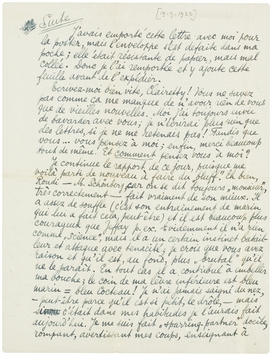 [19-3-1925]
Suite
J'avais emporté cette lettre avec moi pour
la poster, mais l'enveloppe s'est défaite dans ma
poche; elle était résistante de papier, mais mal
collée. Donc je l'ai remportée et y ajoute cette
feuille avant de l'expédier.
Écrivez-moi bien vite, Clairetty! Vous ne savez
pas comme ça me manque de n'avoir rien de vous
que de vieilles nouvelles. Moi j'ai toujours envie
de bavarder avec vous; je n'écrirai plus rien que
des lettres, si je ne me retenais pas! Tandis que
vous... vous pensez à moi; enfin, merci beaucoup
tout de même. Et comment pensez vous à moi?
Je continue le rapport de ce jour, puisque me
voilà parti de nouveau à "suivre du pouf". Eh bien,
lundi — M. Schönberg, car on se dit toujours "monsieur",
très correctement — fait vraiment de son mieux. Il
a assez de souffle (c'est son entraînement de marin
qui lui a fait cela, peut-être) et il est beaucoup plus
courageux que p.ex. Évidemment il n'a rien
comme science, mais il a un certain instinct
et attaque avec ténacité; je crois que vous avez
raison et qu'il est, au fond, plus "brutal" qu'il
ne le paraît. En tout cas il a contribué à embellir
ma bouche; le coin de ma lèvre inférieure est bleu
marin = bleu Cocteau! Je n'ai jamais saigné du nez,
— peut-être parce qu'il est si petit, le drôle, — mais
si c'était dans mes habitudes je l'aurais fait
aujourd'hui. Je me suis fait "sparring-partner" docile,
rompant, avertissant mes coups, enseignant à